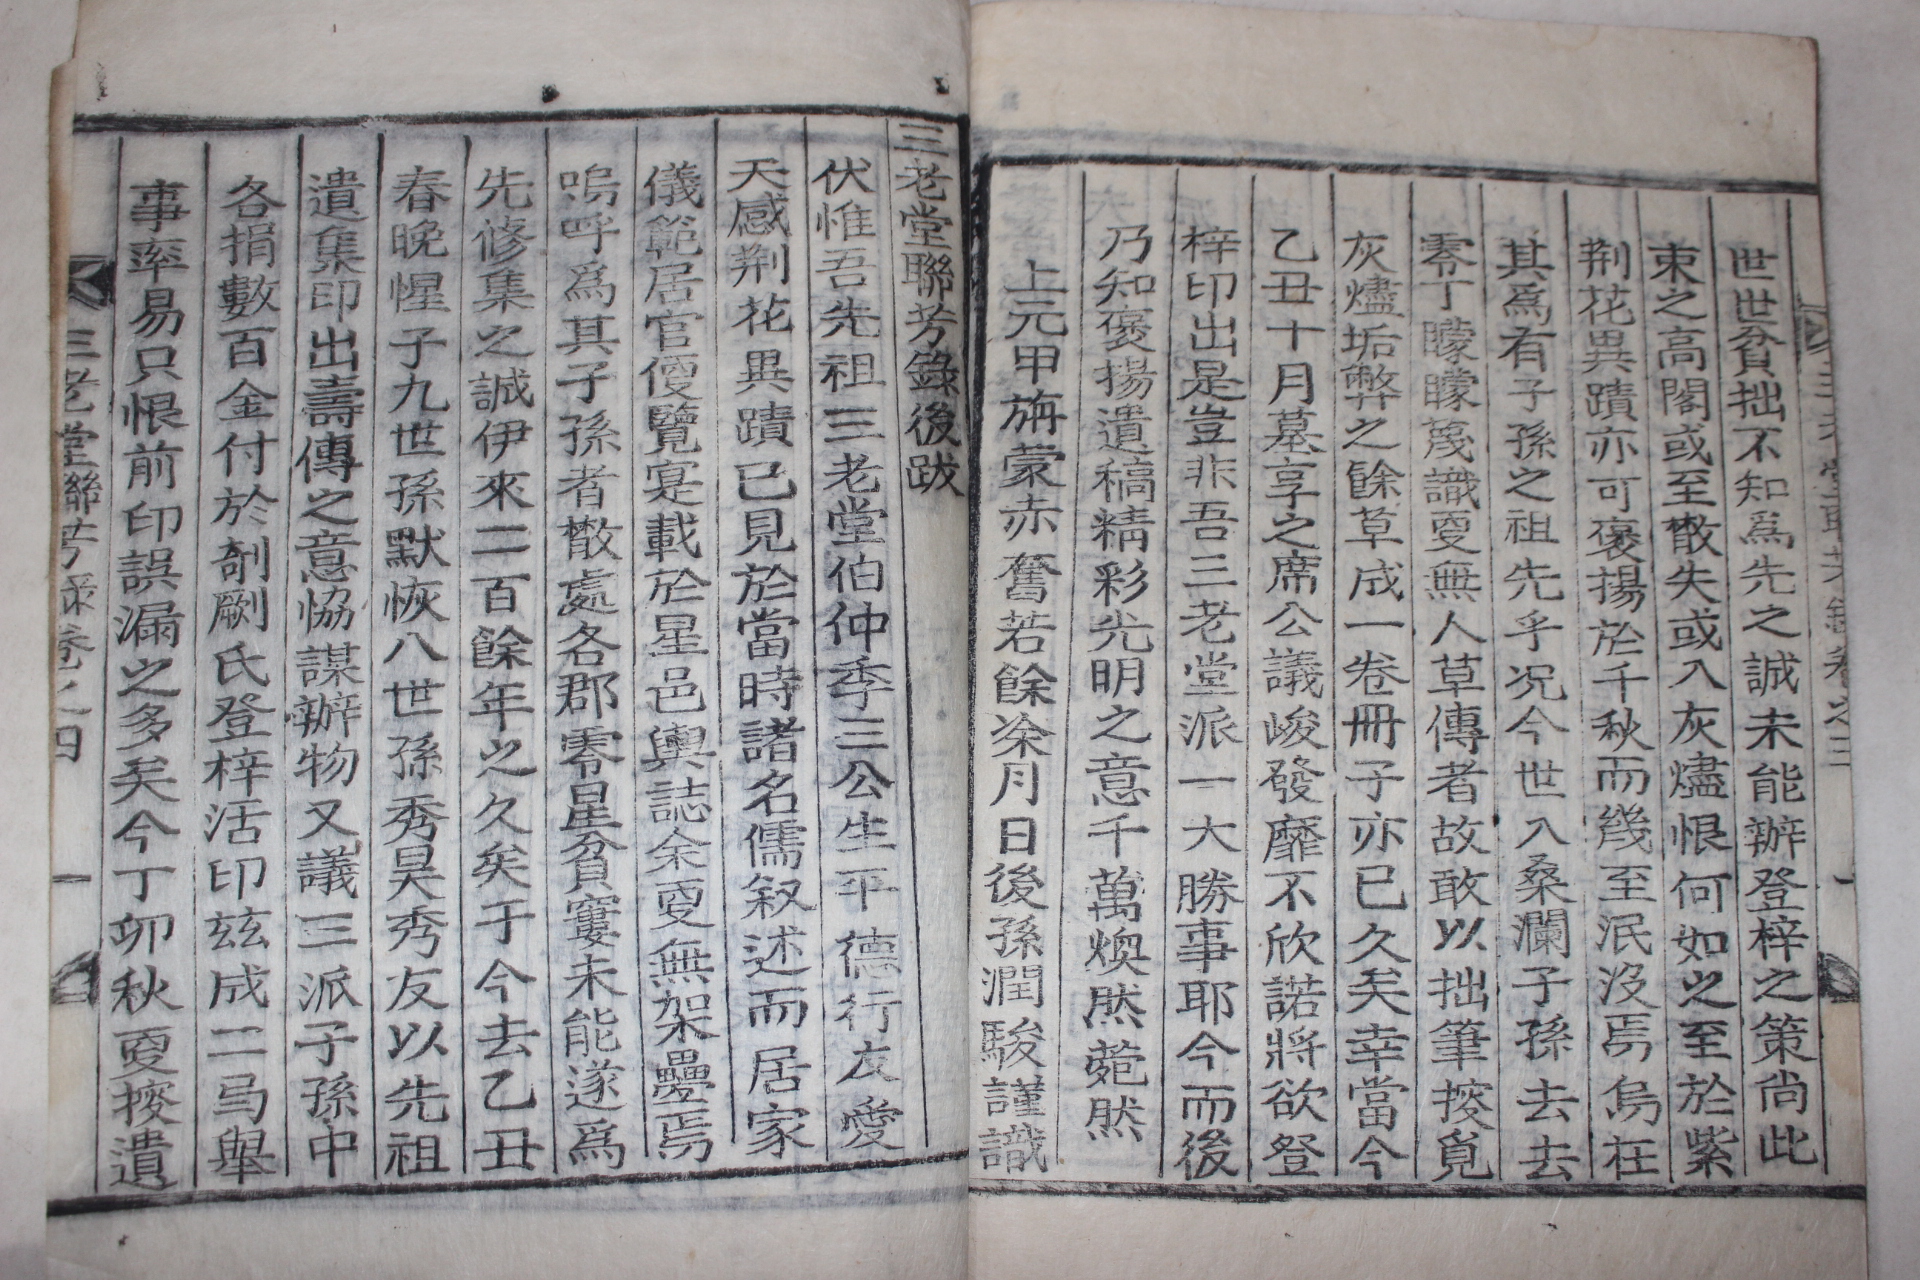 世世貧拙不知爲先之誠未能辦登梓之策尚此
束之高閣或至散失或入灰燼恨何如之至於紫
荆花異蹟亦可褒揚於千秋而幾至泯沒焉烏在
其爲有子孫之祖先乎况今世入桑瀾子孫去去
零丁矇矇蔑識更無人草傳者故敢以拙筆搜覓
灰燼垢弊之餘草成一卷冊子亦已久矣幸當今
乙丑十月墓享之席公議峻發靡不欣諾將欲登
梓印出是豈非吾三老堂派一大勝事耶今而後
乃知褒揚遺稿精彩光明之意千萬煥然菀然
上元甲旃蒙赤奮若餘涂月日後孫潤駿謹識
三老堂聯芳錄後跋
伏惟吾先祖三老堂伯仲季三公生平德行友愛
天感荆花異蹟已見於當時諸名儒叙述而居家
儀範居官優覽寔載於星邑輿誌余更無架疊焉
嗚呼爲其子孫者散處各郡零星貧窶未能遂爲
先修集之誠伊來二百餘年之久矣于今去乙丑
春晚惺子九世孫默恢八世孫秀昊秀友以先祖
遺集印出壽傳之意恊謀辦物又議三派子孫中
各捐數百金付於剞劂氏登梓活印玆成二弓舉
事率易只恨前印誤漏之多矣今丁卯秋更搜遺
三老堂聯芳錄卷之四 一